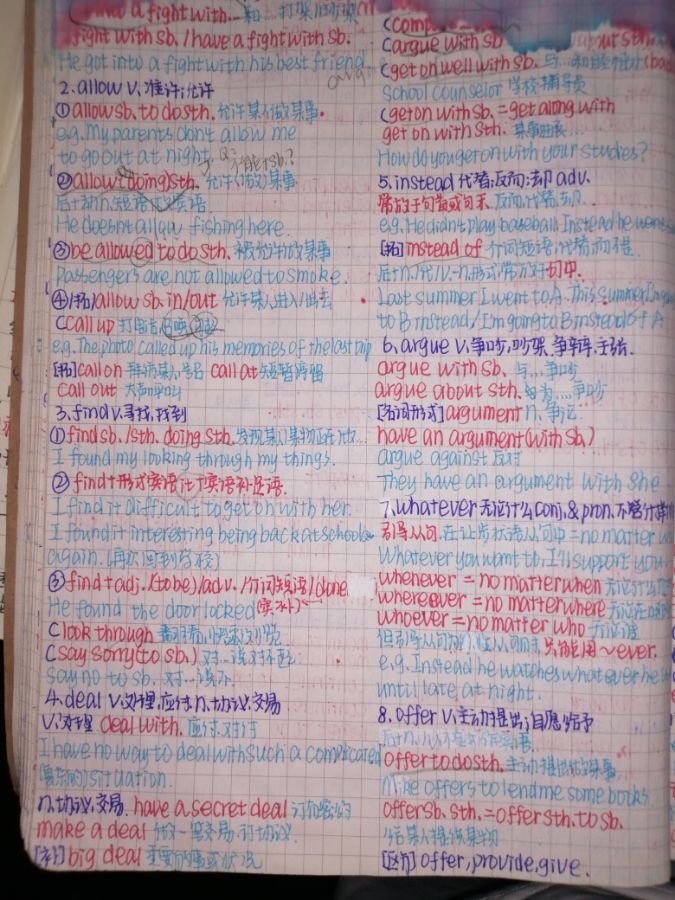 a fight with... 和...打架/吵架
fight with sb. / have a fight with sb.
He got into a fight with his best friend.
2. allow v. 准许;允许
① allow sb. to do sth. 允许某人做某事.
e.g. My parents don't allow me
to go out at night.
② allow (doing) sth. 允许(做)某事
He doesn't allow fishing here.
③ be allowed to do sth. 被允许做某事
Passengers are not allowed to smoke.
④ [拓] allow sb. in/out 允许某人进入/出去
(call up 打电话
e.g. The photo called up his memories of the last trip
[拓] call on call at 短暂停留
call out 大声呼叫
3. find v. 寻找,找到
① find sb./sth. doing sth. 发现某人某物正在做...
I found my looking through my things.
② find+形式宾语it+宾语补足语.
I find it difficult to get on with her.
I found it interesting being back at school
again. (再次回到学校)
③ find+adj./(to be)/adv./介词短语/done
He found the door locked (宾补)
(look through
(say sorry (to sb.) 对...说对不起
say no to sb. 对...说不
4. deal v. 处理,应付 n. 协议,交易
v. 处理 deal with. 应付,对付
I have no way to deal with such a complicated
(复杂的) situation.
n. 协议,交易. have a secret deal
make a deal 做一笔交易,订协议.
big deal 重要的事或状况
(argue with sb
(get on well with sb. 与...
school counselor 学校辅导员
(get on with sb. = get along with
get on with sth. 某事进展...
How do you get on with your studies?
5. instead 代替;反而;却 adv.
常放于句首或句末.
e.g. He didn't play baseball. Instead he went
[拓] instead of 介词短语,代替,而不是.
Last summer I went to A. This summer I'm going
to B instead./I'm going to B instead of A
6. argue v. 争吵,吵架,争辩,
argue with sb. 与...争吵
argue about sth. 为...争吵
[名词形式] argument n. 争论
have an argument (with sb.)
argue against 反对
They have an argument with she
7. whatever 无论什么 conj. & pron. 不管什么
引导从句,在让步状语从句中=no matter
Whatever you want to, I'll support you.
whenever = no matter when 无论什么
wherever = no matter where 无论在
whoever = no matter who 无论谁
只能用~ever.
e.g. Instead he watches whatever he
until late at night.
8. offer v. 主动提出;自愿给予
offer to do sth. 主动提出做某事
Mike offers to lend me some books
offer sb. sth. = offer sth. to sb.
给某人提供某物
[区分] offer, provide, give.